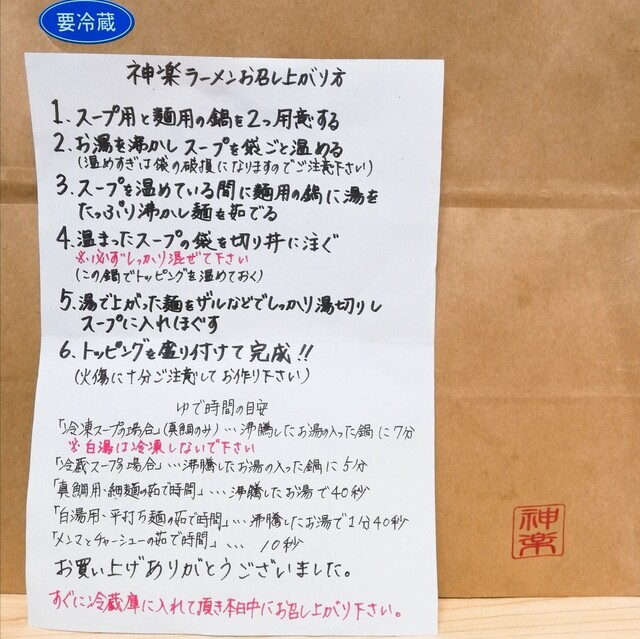 要冷蔵
神楽ラーメンお召し上がり方
1. スープ用と麺用の鍋を2つ用意する
2. お湯を沸かしスープを袋ごと温める
(温めすぎは袋の破損になりますのでご注意下さい)
3. スープを温めている間に麺用の鍋に湯を
たっぷり沸かし麺を茹でる
4. 温まったスープの袋を切り丼に注ぐ
※必ずしっかり混ぜて下さい
(この鍋でトッピングを温めておく)
5. 湯で上がった麺をザルなどでしっかり湯切りし
スープに入れほぐす
6. トッピングを盛り付けて完成!!
(火傷に十分ご注意してお作り下さい)
ゆで時間の目安
「冷凍スープの場合」(真鯛のみ)…沸騰したお湯の入った鍋に7分
※白湯は冷凍しないで下さい
「冷蔵スープの場合」…沸騰したお湯の入った鍋に5分
「真鯛用、細麺の茹で時間」…沸騰したお湯で40秒
「白湯用、平打ち麺の茹で時間」…沸騰したお湯で1分40秒
「メンマとチャーシューの茹で時間」…10秒
お買い上げありがとうございました。
すぐに冷蔵庫に入れて頂き本日中にお召し上がり下さい。
神楽